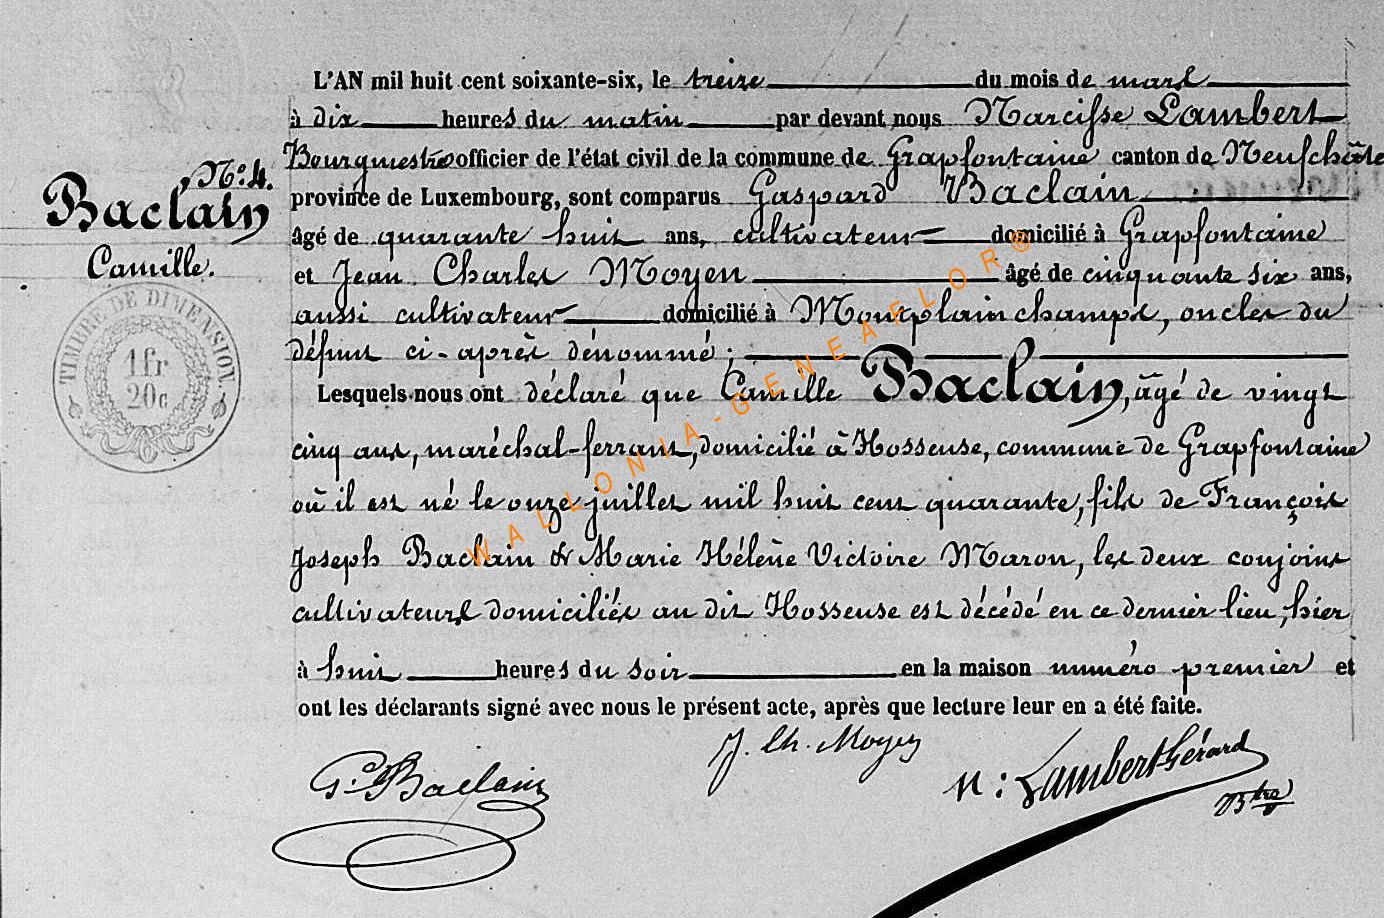 L'AN mil huit cent soixante-six, le treize du mois de mars
à dix heures du matin par devant nous Narcisse Lambert
Bourgmestre officier de l'état civil de la commune de Grapfontaine canton de Neufchâte
N° 4.
province de Luxembourg, sont comparus Gaspard Baclain
Baclain
âgé de quarante huit ans, cultivateur domicilié à Grapfontaine
Camille.
et Jean Charles Moyen âgé de cinquante six ans,
aussi cultivateur domicilié à Montplainchamps, oncles du
défunt ci-après dénommé ;
TIMBRE DE DIMENSION.
1 fr
20 c
Lesquels nous ont déclaré que Camille Baclain, âgé de vingt
cinq ans, maréchal-ferrant, domicilié à Hosseuse, commune de Grapfontaine
où il est né le onze juillet mil huit cent quarante, fils de François
Joseph Baclain & Marie Hélène Victoire Maron, les deux conjoints
cultivateurs domiciliés au dit Hosseuse est décédé en ce dernier lieu, hier
à huit heures du soir en la maison numéro premier et
ont les déclarants signé avec nous le présent acte, après que lecture leur en a été faite.
G. Baclain
J. Ch. Moyen
N : Lambert Gérard
Btre
WALLONIA-GENEAFLOR®